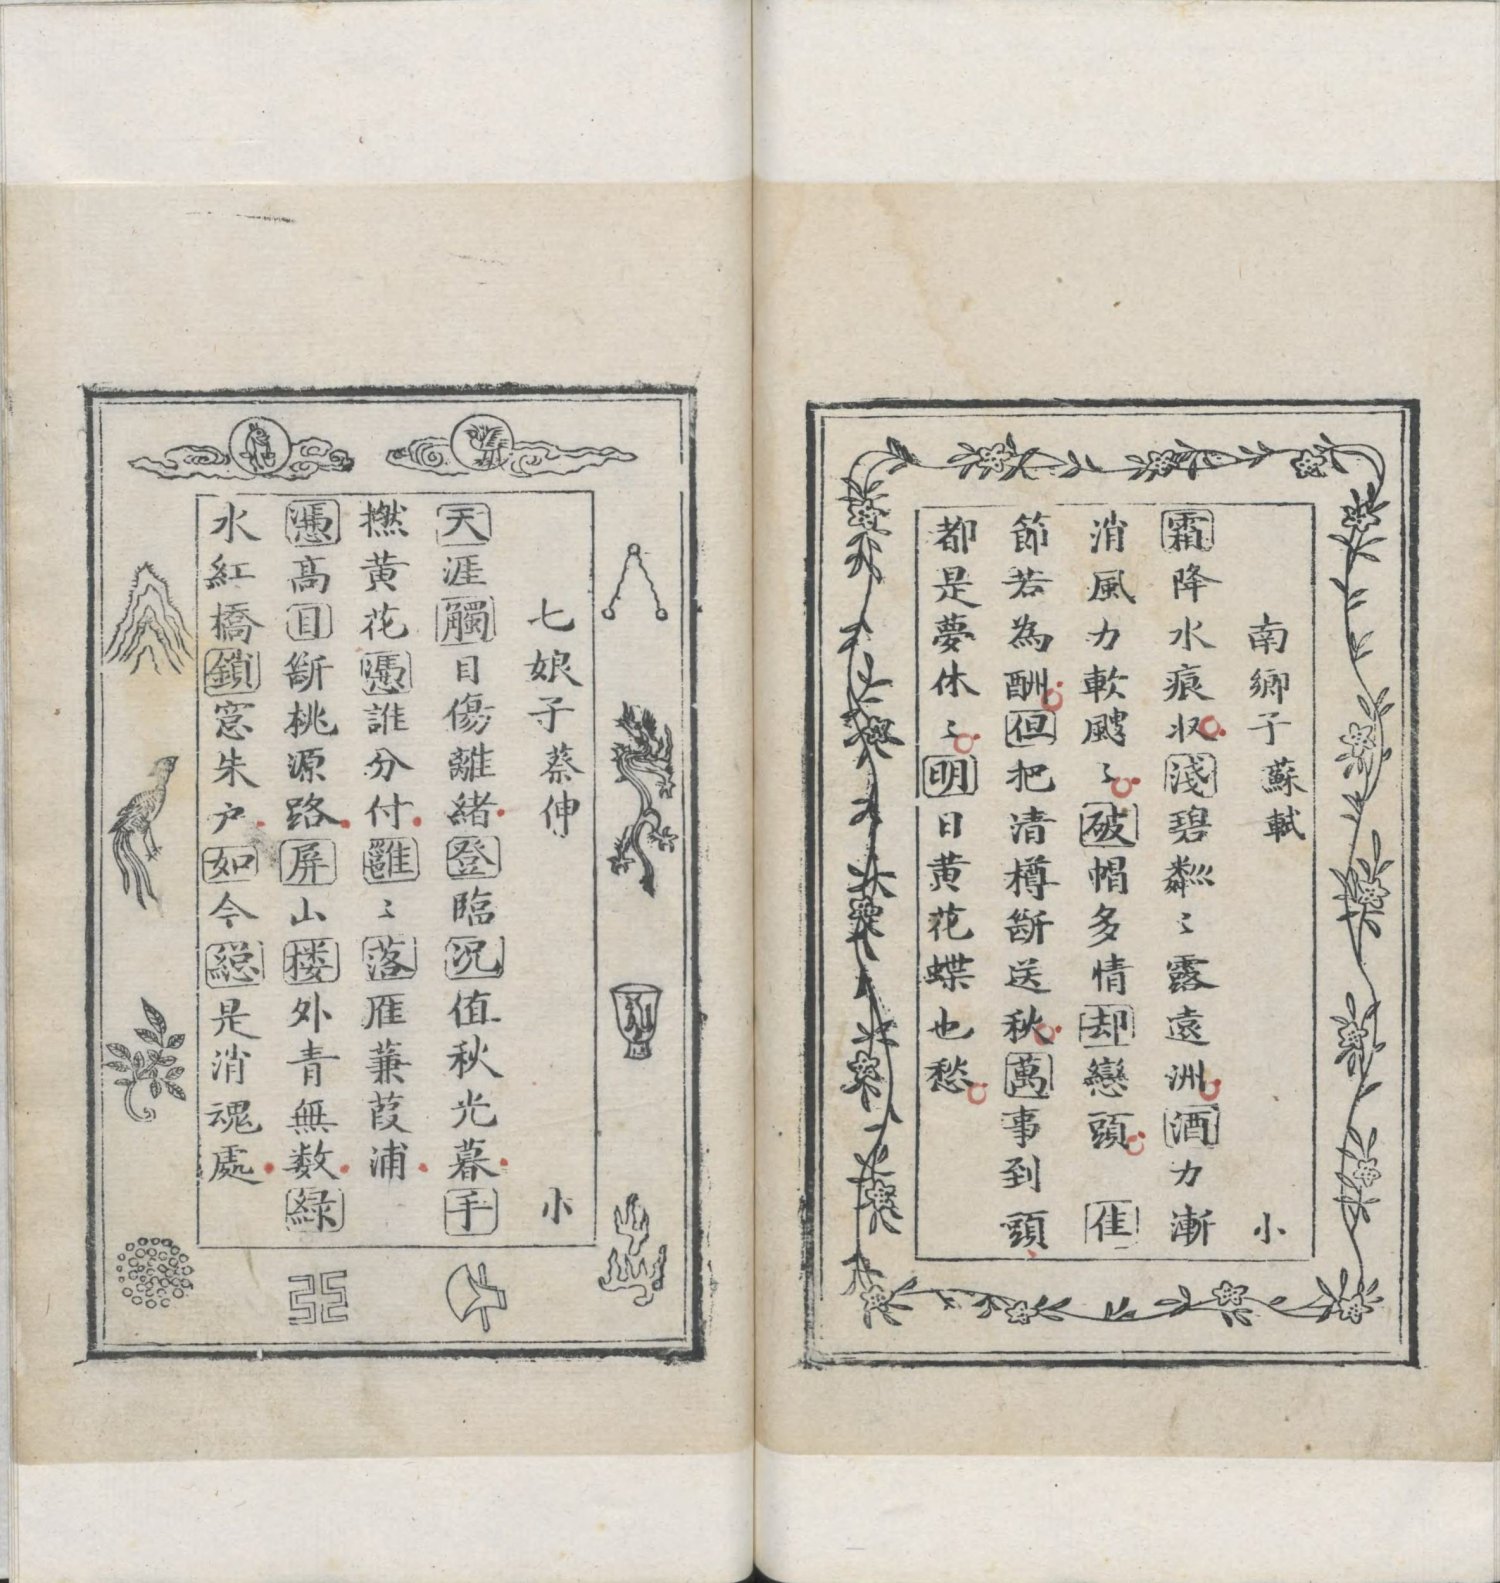 南鄉子蘇軾 小
霜降水痕収淺碧粼〻露遠洲酒力漸
消風力軟颼〻破帽多情却戀頭 佳
節若為酬但把清樽斷送秋萬事到頭
都是夢休〻明日黃花蝶也愁
七娘子蔡伸 小
天涯觸目傷離緒登臨況值秋光暮手
撚黃花憑誰分付雝〻落雁蒹葭浦
憑高目斷桃源路屏山楼外青無数綠
水紅橋鎖窓朱戶如今縂是消魂處